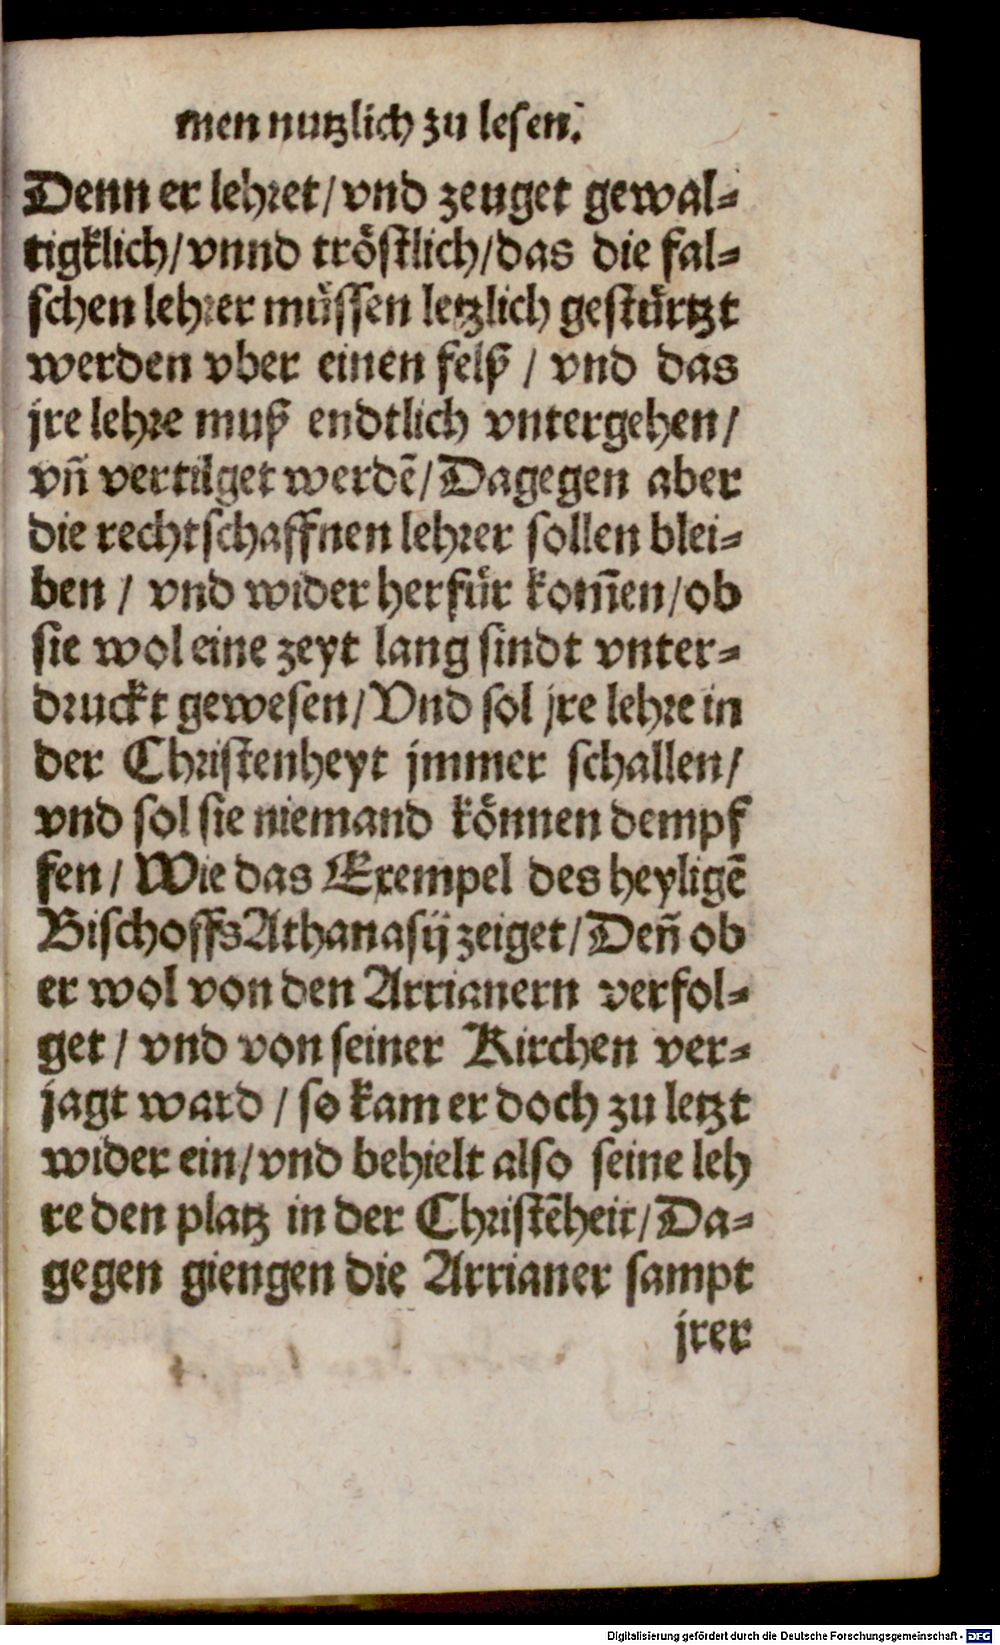 men nutzlich zu lesen.
Denn er lehret/ vnd zeuget gewal-
tigklich/ vnnd tröstlich/ das die fal-
schen lehrer müssen letzlich gestürtzt
werden vber einen felß / vnd das
jre lehre muß endtlich vntergehen/
vñ vertilget werdẽ/ Dagegen aber
die rechtschaffnen lehrer sollen blei-
ben / vnd wider herfür kom̃en/ ob
sie wol eine zeyt lang sindt vnter-
druckt gewesen/ Vnd sol jre lehre in
der Christenheyt jmmer schallen/
vnd sol sie niemand können dempf
fen/ Wie das Exempel des heyligẽ
Bischoffs Athanasij zeiget/ Deñ ob
er wol von den Arrianern verfol-
get / vnd von seiner Kirchen ver-
jagt ward / so kam er doch zu letzt
wider ein/ vnd behielt also seine leh
re den platz in der Christẽheit/ Da-
gegen giengen die Arrianer sampt
jrer
Digitalisierung gefördert durch die Deutsche Forschungsgemeinschaft - DFG